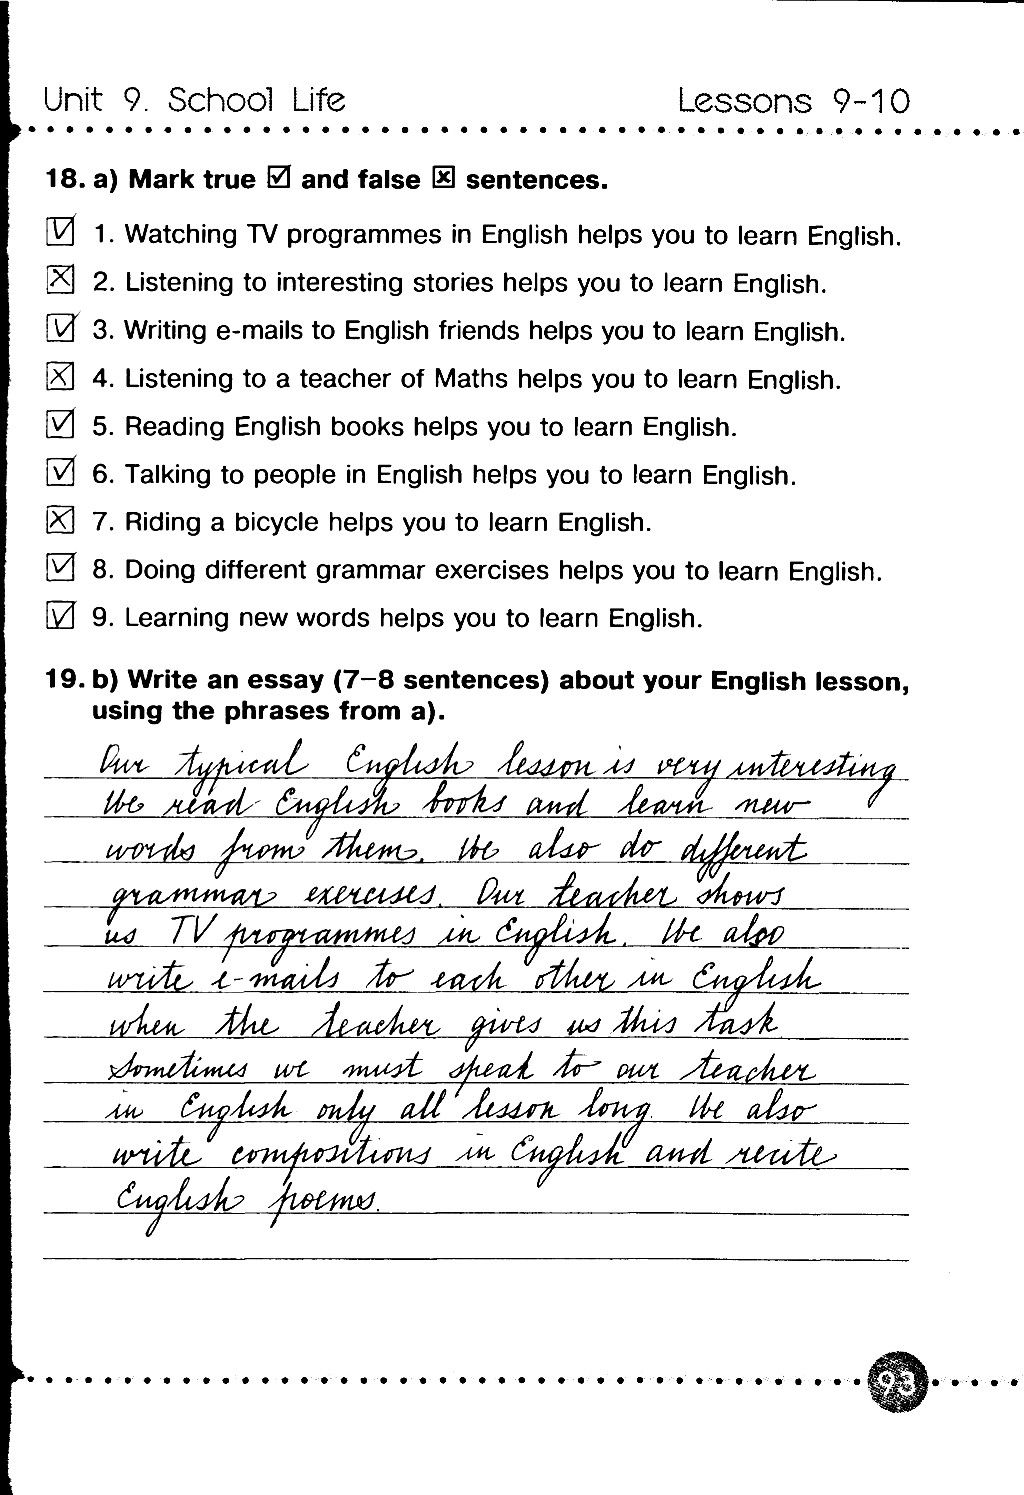 Unit 9. School Life Lessons 9-10
18. a) Mark true ☑ and false ☒ sentences.
☑ 1. Watching TV programmes in English helps you to learn English.
☒ 2. Listening to interesting stories helps you to learn English.
☑ 3. Writing e-mails to English friends helps you to learn English.
☒ 4. Listening to a teacher of Maths helps you to learn English.
☑ 5. Reading English books helps you to learn English.
☑ 6. Talking to people in English helps you to learn English.
☒ 7. Riding a bicycle helps you to learn English.
☑ 8. Doing different grammar exercises helps you to learn English.
☑ 9. Learning new words helps you to learn English.
19. b) Write an essay (7–8 sentences) about your English lesson,
using the phrases from a).
Our typical English lesson is very interesting
We read English books and learn new
words from them. We also do different
grammar exercises. Our teacher shows
us TV programmes in English. We also
write e-mails to each other in English
when the teacher gives us this task
Sometimes we must speak to our teacher
in English only all lesson long. We also
write compositions in English and recite
English poems.
93